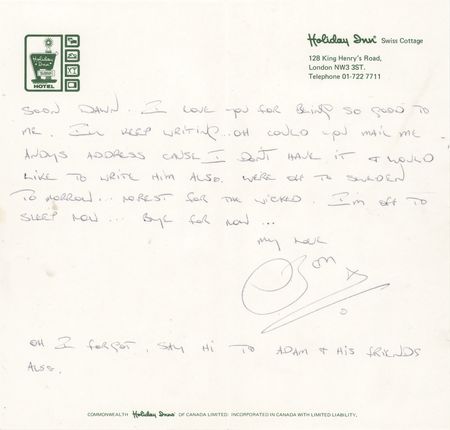 Holiday Inn Swiss Cottage
128 King Henry's Road,
London NW3 3ST.
Telephone 01-722 7711
Holiday Inn
HOTEL
SOON DAWN. I LOVE YOU FOR BEING SO GOOD TO
ME. I'LL KEEP WRITING.. OH COULD YOU MAIL ME
ANDYS ADDRESS CAUSE I DON'T HAVE IT & WOULD
LIKE TO WRITE HIM ALSO. WERE OFF TO SWEDEN
TOMORROW... NO REST FOR THE WICKED. I'M OFF TO
SLEEP NOW... BYE FOR NOW...
MY LOVE
OH I FORGOT, SAY HI TO ADAM & HIS FRIENDS
ALSO.
COMMONWEALTH Holiday Inns OF CANADA LIMITED: INCORPORATED IN CANADA WITH LIMITED LIABILITY.